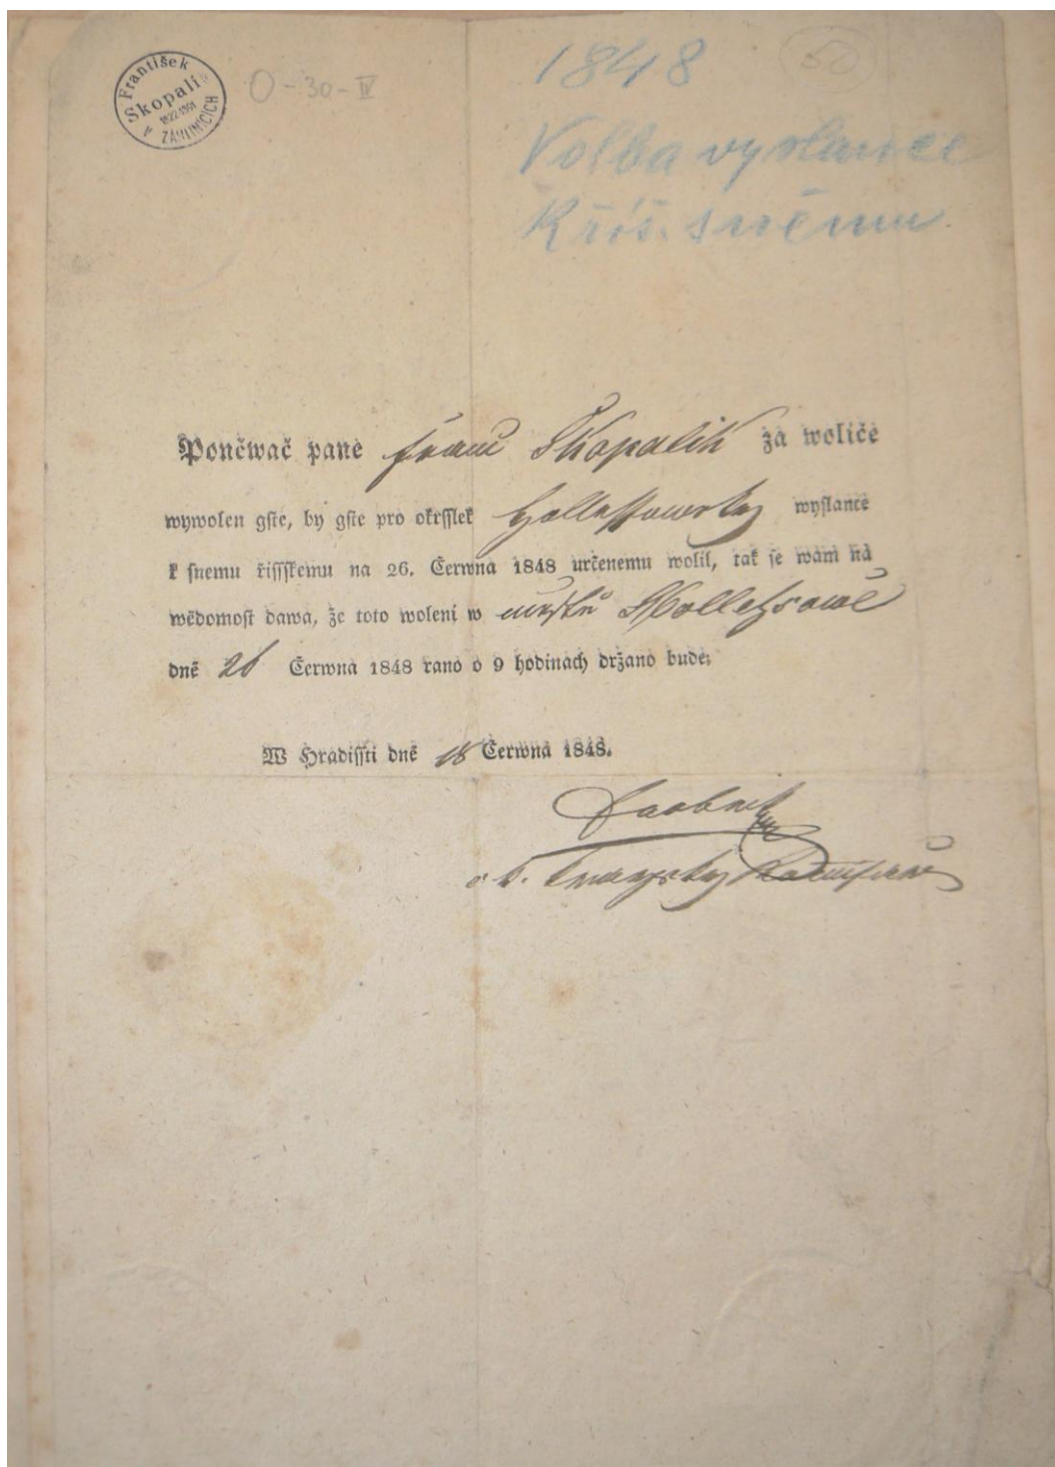 S. František
Skopalík
1822-1891
V ZÁHLINICÍCH
O-30-IV
50
1848
Volba vyslance
Říš. sněmu
Poněwač pane Franz Skopalik za woliče
wywolen gste, by gste pro okrsslek Hollessowsky wyslance
k snemu řissskemu na 26. Čerwna 1848 určenemu wolil, tak se wam na
wědomost dawa, že toto woleni w městě Hollessowě
dně 26 Čerwna 1848 rano o 9 hodinach držano bude.
W Hradissti dně 18 Čerwna 1848.
k. k. Kraysky